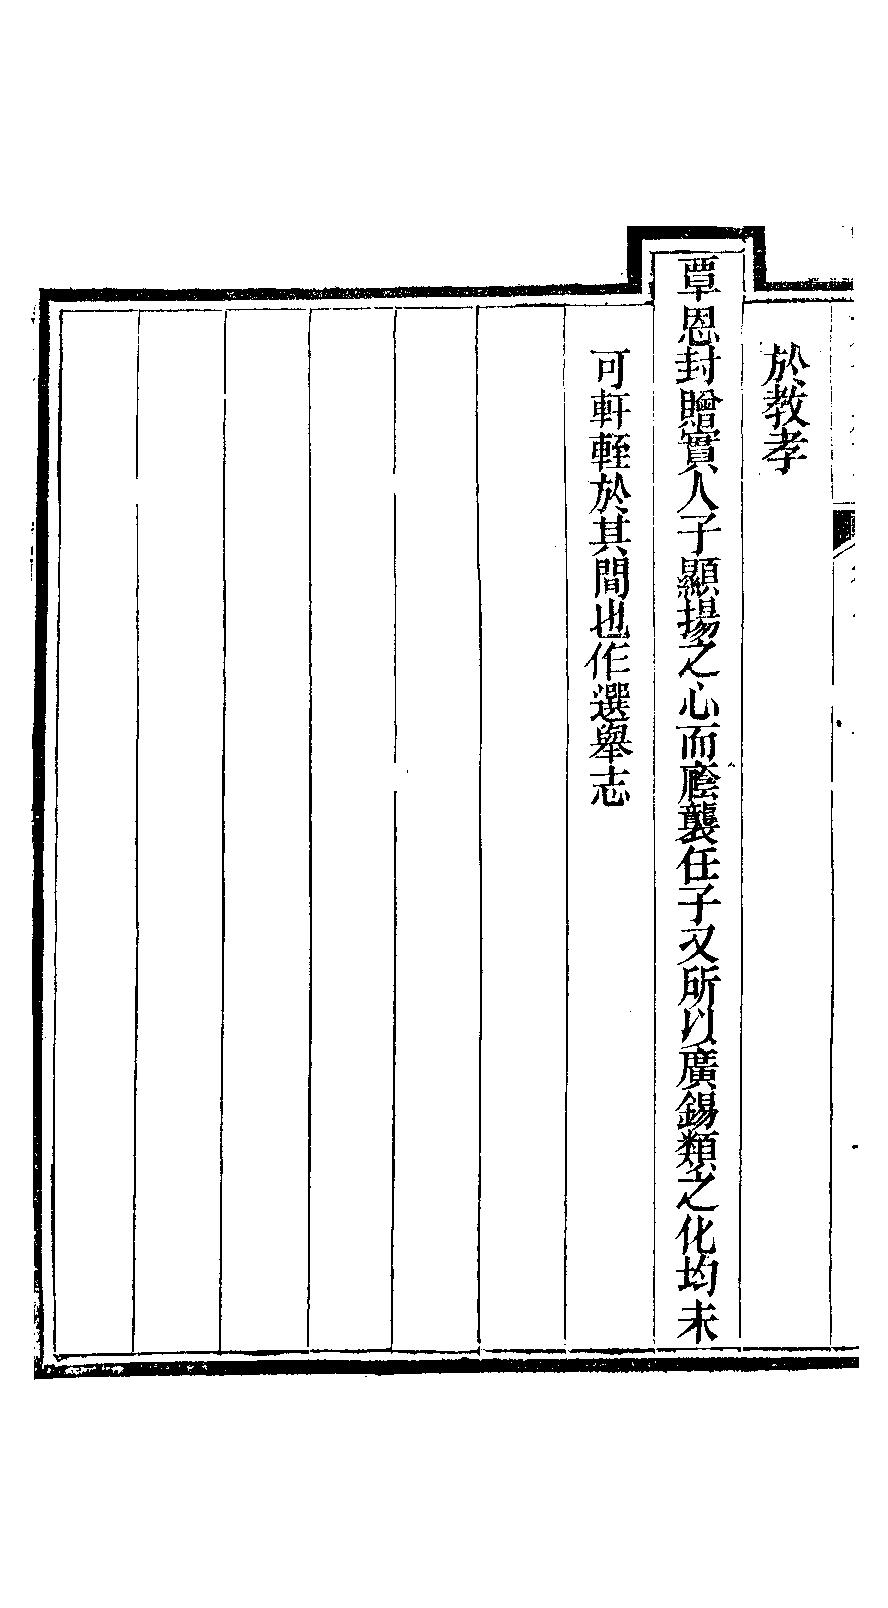 於教孝
覃恩封贈實人子顯揚之心而廕襲任子又所以廣錫類之化均未
可軒輊於其間也作選舉志